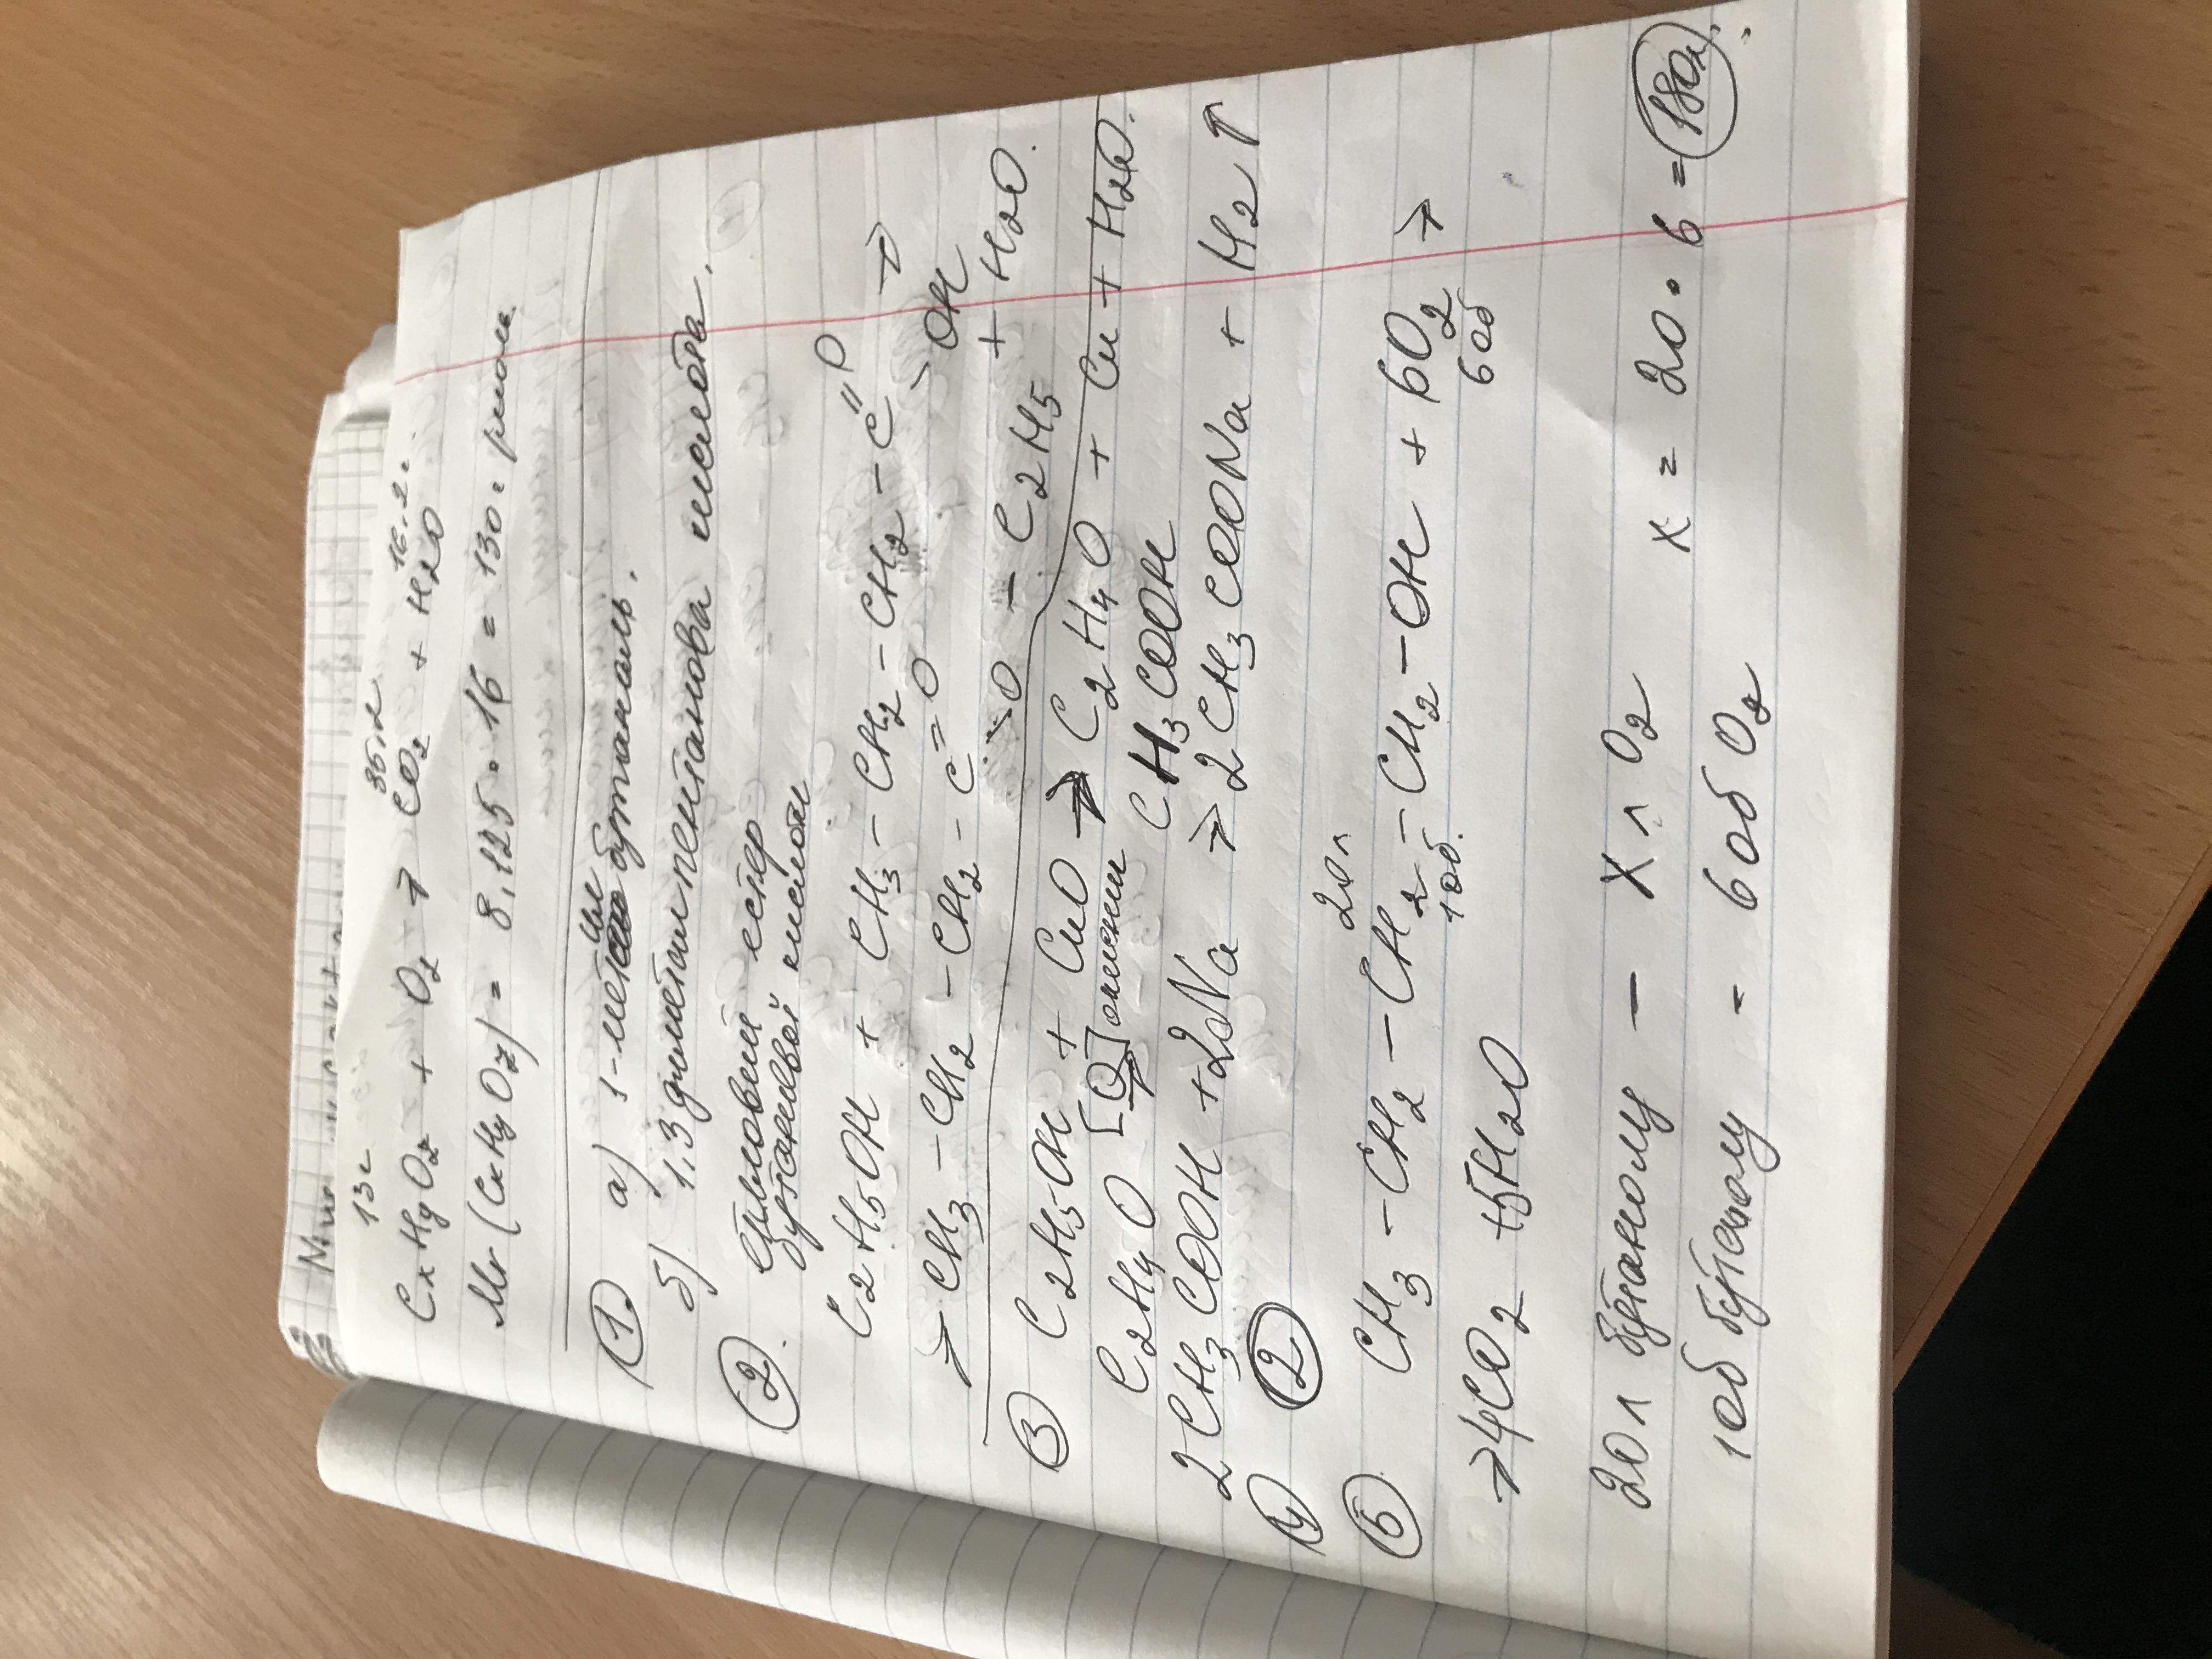 13г 35,2г 16,2г
CxHyOz + O2 → CO2 + H2O
Mr(CxHyOz) = 8,125 · 16 = 130 г/моль
① а) 1-метил бутаналь.
б) 1,3 диметилпентанова кислота.
② Етиловий естер
бутанової кислоти
C2H5OH + CH3 – CH2 – CH2 – C =O – OH →
→ CH3 – CH2 – CH2 – C =O – O – C2H5 + H2O.
③ C2H5OH + CuO → C2H4O + Cu + H2O.
C2H4O [O] → окиснення CH3COOH
2CH3COOH + 2Na → 2CH3COONa + H2↑
④ ②
20л
⑤ CH3 – CH2 – CH2 – CH2 – OH + 6O2 →
1об. 6об
→ 4CO2 + 5H2O
20л бутанолу – X л O2
1об бутанолу – 6об O2
x = 20 · 6 = 180л.